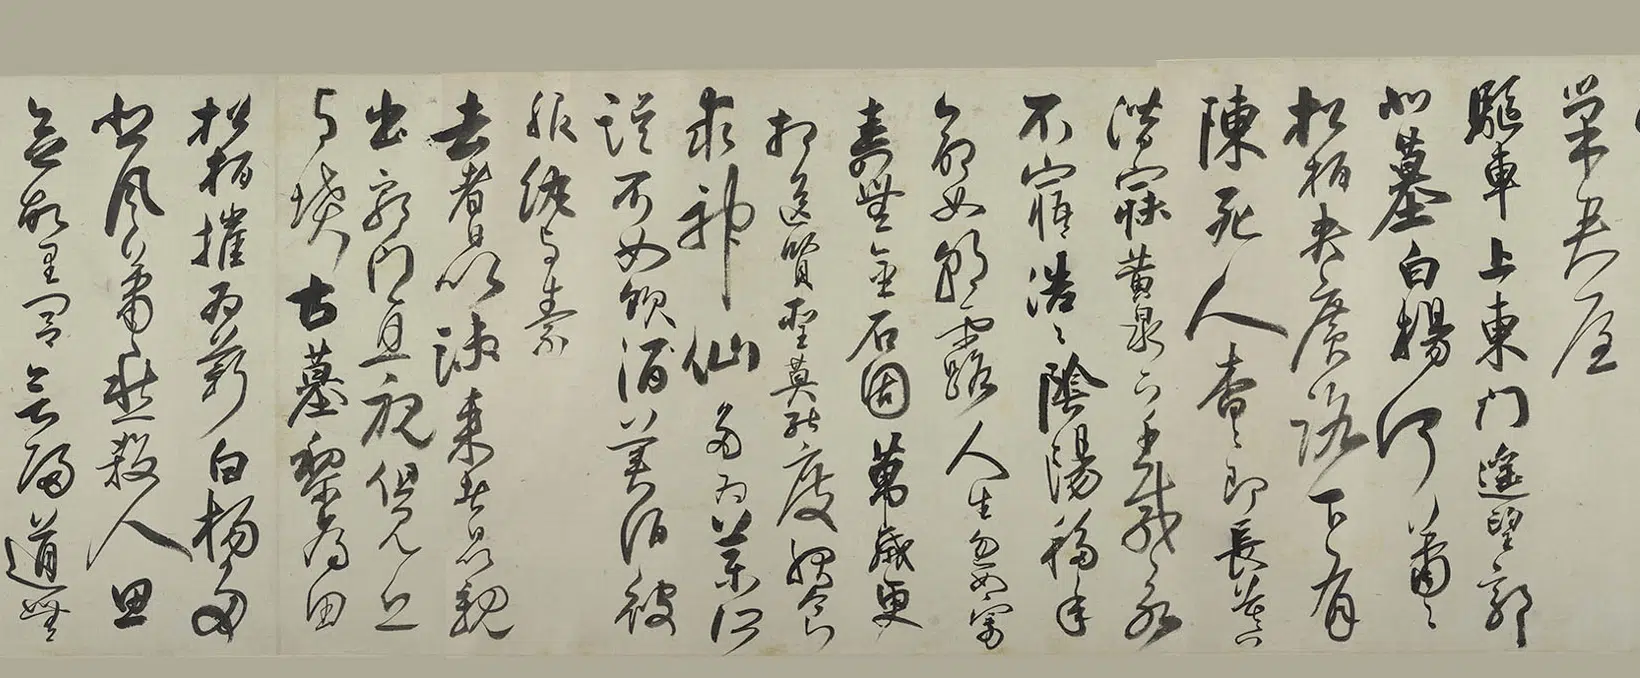 巢君屋
驅車上東門遙望郭
北墓白楊何蕭〻
松柏夾廣路下有
陳死人杳〻即長暮
潛寐黃泉下千載永
不寤浩〻陰陽移年
命如朝露人生忽如寄
壽無金石固萬歲更
相送賢聖莫能度服食
求神仙多為藥所
誤不如飲酒美酒被
服紈與素
去者日以疎來者日以親
出郭門直視但見丘
与墳古墓犁為田
松柏摧為薪白楊多
悲風蕭〻愁殺人思
還故里閭欲歸道無